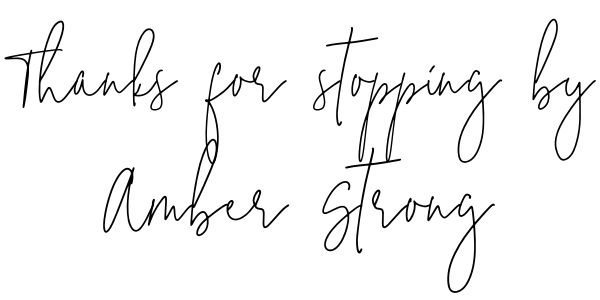 Thanks for stopping by
Amber Strong